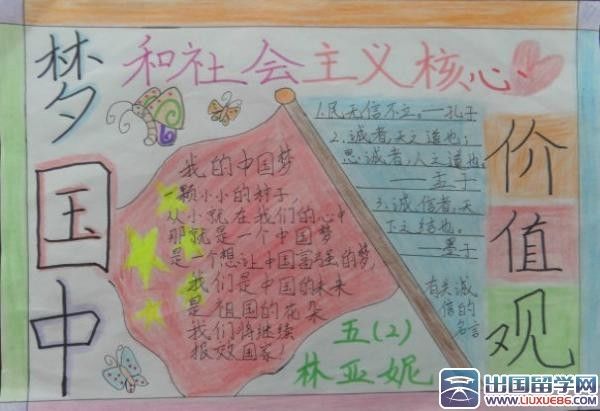 梦
国
中
和社会主义核心
价
值
观
我的中国梦
一颗小小的种子,
从小就在我们的心中
那就是一个中国梦
是一个想让中国富强的梦,
我们是中国的未来
是祖国的花朵
我们将继续
报效国家!
1.民无信不立。——孔子
2.诚者,天之道也;
思诚者,人之道也。
——孟子
3.诚信者,天
下之结也。
——墨子
有关诚
信的
名言
五(2)
林亚妮
出国留学网
WWW.LIUXUE86.COM